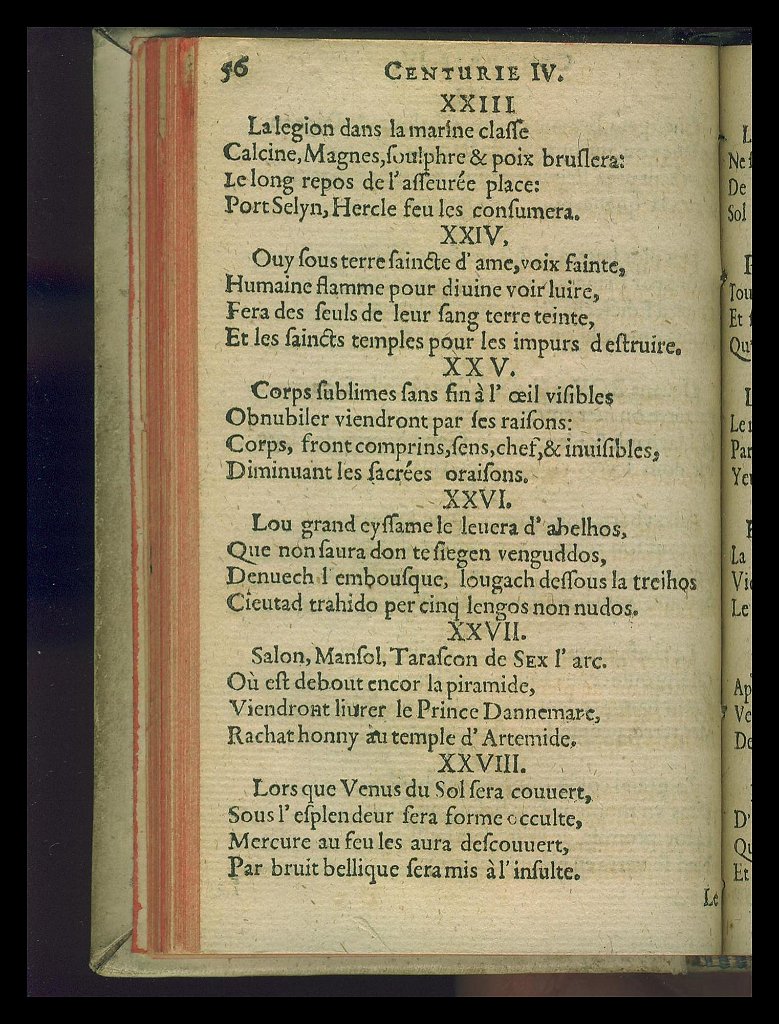 56 CENTURIE IV.
XXIII
La legion dans la marine claſſe
Calcine, Magnes, ſoulphre & poix bruſlera:
Le long repos de l'aſſeurée place:
Port Selyn, Hercle feu les conſumera.
XXIV,
Ouy ſous terre ſaincte d'ame, voix fainte,
Humaine flamme pour diuine voir luire,
Fera des ſeuls de leur ſang terre teinte,
Et les ſaincts temples pour les impurs deſtruire.
XXV.
Corps ſublimes ſans fin à l'œil viſibles
Obnubiler viendront par ſes raiſons:
Corps, front comprins, ſens, chef, & inuiſibles,
Diminuant les ſacrées oraiſons.
XXVI.
Lou grand eyſſame le leuera d'abelhos,
Que non ſaura don te ſiegen venguddos,
Denuech l'embouſque, lougach deſſous la treihos
Cieutad trahido per cinq lengos non nudos.
XXVII.
Salon, Manſol, Taraſcon de SEX l'arc.
Où eſt debout encor la piramide,
Viendront liurer le Prince Dannemarc,
Rachat honny au temple d'Artemide.
XXVIII.
Lors que Venus du Sol ſera couuert,
Sous l'eſplendeur ſera forme occulte,
Mercure au feu les aura deſcouuert,
Par bruit bellique ſera mis à l'inſulte.
Le
De
Sol
Tou
Et
Qu'
Par
La
Le
Ap
Ve
De
D'
Qu
Et